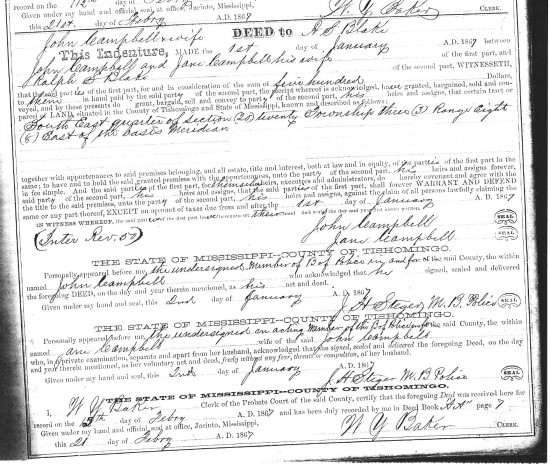 record on the 11th day of Febry
Given under my hand and official seal, at office, Jacinto, Mississippi,
this 21st day of Febry A. D. 1867 W. Y. Baker CLERK.
John Campbell & wife DEED to A S Blake
This Indenture, MADE the 1st day of January A. D. 1867 between
John Campbell and Jane Campbell his wife of the first part, and
Ralph S Blake of the second part, WITNESSETH,
that the said parties of the first part, for and in consideration of the sum of Five hundred Dollars,
to them in hand paid by the said party of the second part, the receipt whereof is acknowledged, have granted, bargained, sold and con-
veyed, and by these presents do grant, bargain, sell and convey to the said party of the second part, his heirs and assigns, that certain tract or
parcel of LAND, situated in the County of Tishomingo and State of Mississippi, known and described as follows:
South East quarter of Section (20) twenty Township three (3) Range Eight
(8) East of the basis Meridian
together with appurtenances to said premises belonging, and all estate, title and interest, both at law and in equity, of the parties of the first part in the
same; to have and to hold the said granted premises with the appurtenances, unto the party of the second part, his heirs and assigns forever,
in fee simple. And the said parties of the first part, for themselves heirs, executors and administrators, do hereby covenant and agree with the
said party of the second part, his heirs and assigns, that the said parties of the first part, shall forever WARRANT AND DEFEND
the title to the said premises, unto the party of the second part, his heirs and assigns, against the claim of all persons lawfully claiming the
same or any part thereof, EXCEPT on account of taxes due from and after the 1st day of January A. D. 1867
IN WITNESS WHEREOF, the said parties of the first part have hereunto set their hand and seal the day and year first above written.
John Campbell SEAL
(Inter Rev. 50) Jane Campbell SEAL
THE STATE OF MISSISSIPPI—COUNTY OF TISHOMINGO.
Personally appeared before me, the undersigned Member of B of Police in and for the said County, the within
named John Campbell who acknowledged that he signed, sealed and delivered
the foregoing DEED, on the day and year therein mentioned, as his act and deed.
Given under my hand and seal, this 2nd day of January A. D. 1867
J H Steger M. B. Police SEAL
THE STATE OF MISSISSIPPI—COUNTY OF TISHOMINGO.
Personally appeared before me, the undersigned an acting Member of the B of Police in and for the said County, the within
named ane Campbell wife of the said John Campbell
who, in private examination, separate and apart from her husband, acknowledged that she signed, sealed and delivered the foregoing Deed, on the day
and year therein mentioned, as her voluntary act and deed, freely without any fear, threats or compulsion, of her husband.
Given under my hand and seal, this 2nd day of January A. D. 1867
J H Steger M B Police SEAL
THE STATE OF MISSISSIPPI—COUNTY OF TISHOMINGO.
I, W Y Baker Clerk of the Probate Court of said County, certify that the foregoing Deed was received here for
record on the 15th day of Febry A. D. 1867 and has been duly recorded by me in Deed Book "AA" page 7
Given under my hand and official seal at office, Jacinto, Mississippi,
this 21 day of Febry A. D. 1867 W Y Baker CLERK.